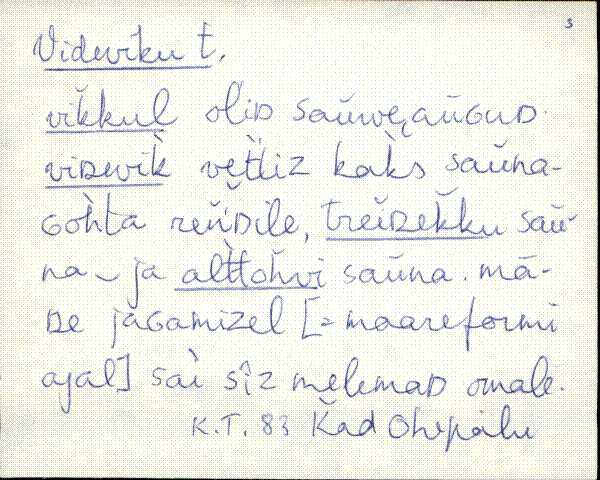 s
Videviku t.
vik̆kul oliD saŭwnaŭGuD.
viDevìk vet̀liz kak̀s saŭna-
Goh̀ta ren̆Dile, treĭDek̆ku saŭ-
na ja alt̀toh̆vi saŭna. mā-
De jaGamizel [= maareformi
ajal] saì sîz mɐlemaD omale.
K.T. 83 Kad Ohepalu